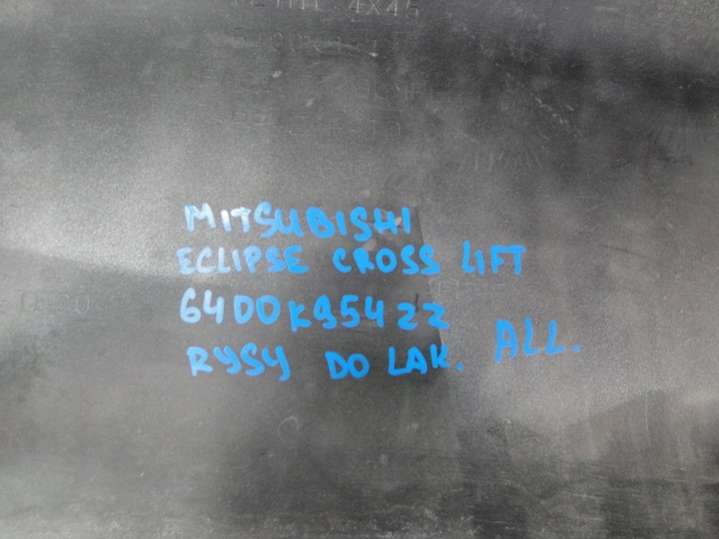 MITSUBISHI
ECLIPSE CROSS LIFT
6400K954ZZ
RYSY DO LAK. ALL.